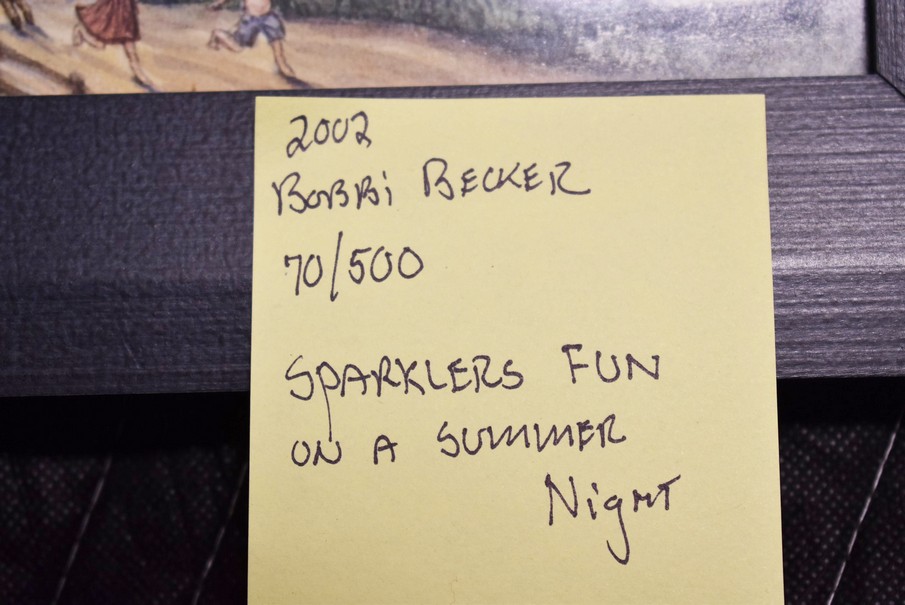 2002
BOBBi BECKER
70/500
SPARKLERS FUN
ON A SUMMER
NigHT